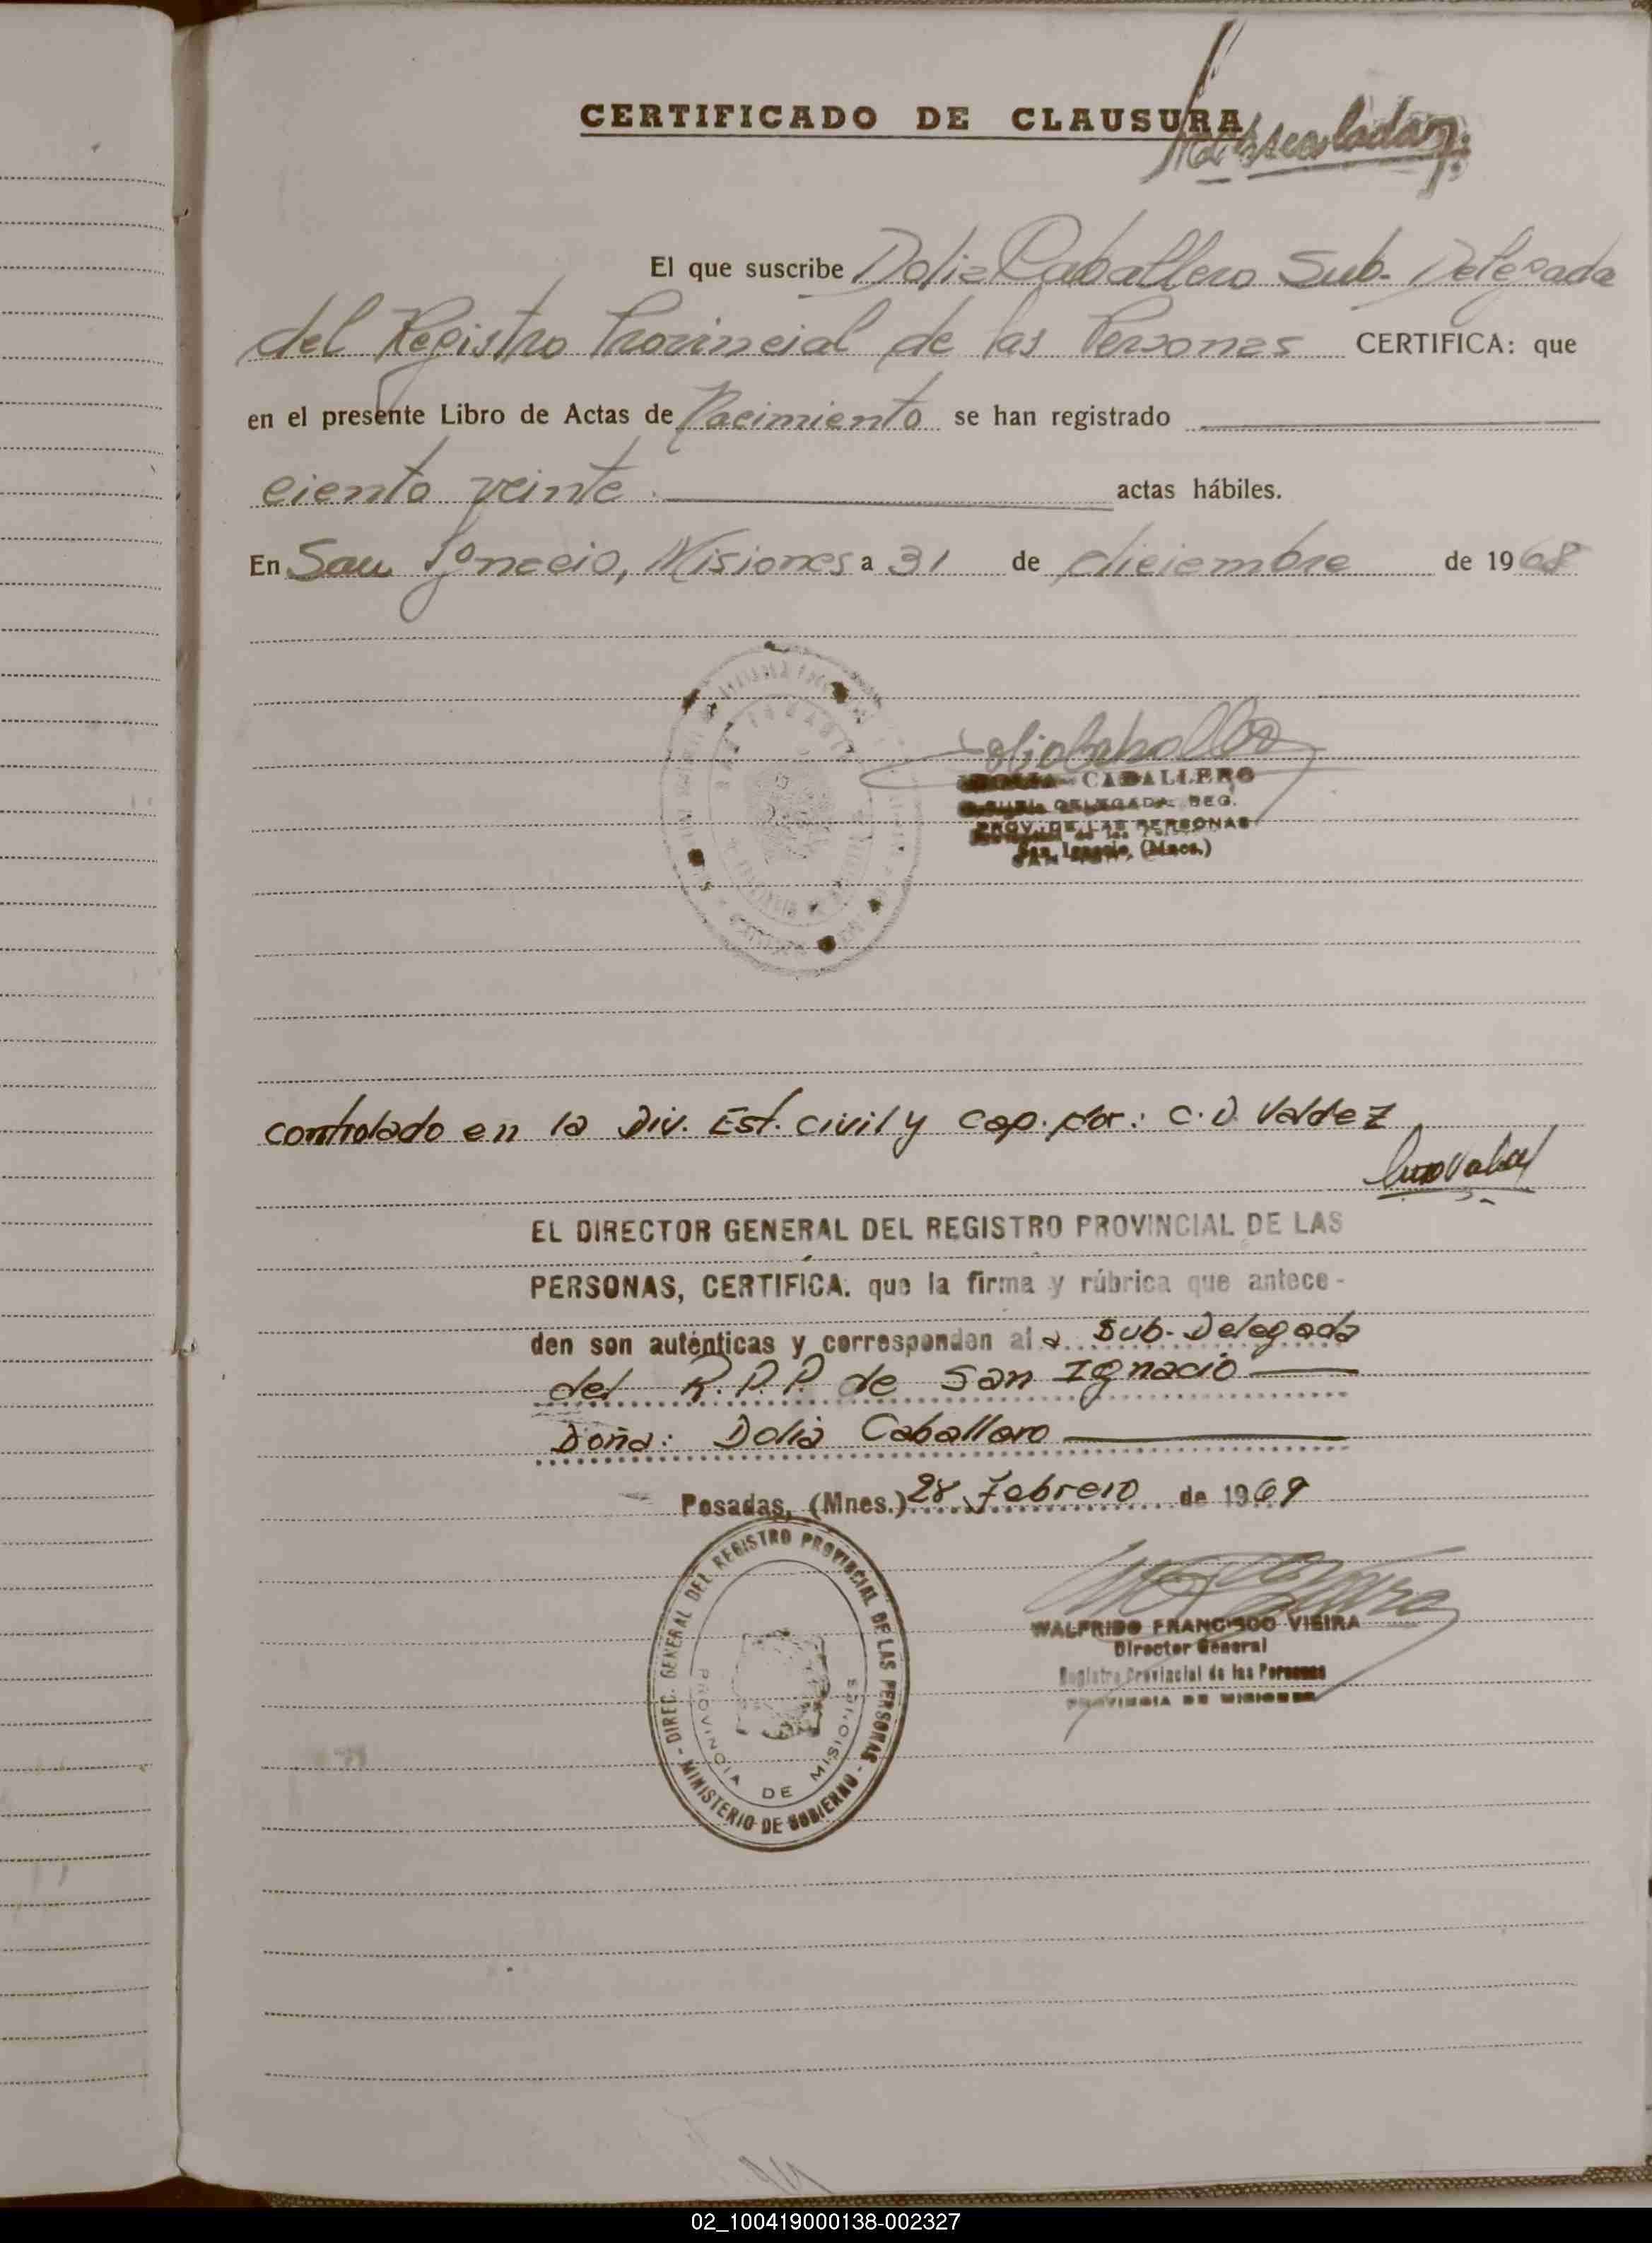 CERTIFICADO DE CLAUSURA
El que suscribe Dolia Caballero Sub-Delegada
del Registro Provincial de las Personas CERTIFICA: que
en el presente Libro de Actas de Nacimiento se han registrado
ciento veinte actas hábiles.
En San Ignacio, Misiones a 31 de diciembre de 1968
CABALLERO
DELEGADA REG.
PROV. DE LAS PERSONAS
San Ignacio, (Mnes.)
controlado en la Div. Est. civil y cap. por: C.D. Valdez
EL DIRECTOR GENERAL DEL REGISTRO PROVINCIAL DE LAS
PERSONAS, CERTIFICA. que la firma y rúbrica que antece-
den son auténticas y corresponden al a Sub-Delegada
del R.P.P. de San Ignacio
Doña: Dolia Caballero
Posadas, (Mnes.) 28 Febrero de 1969
DIREC. GENERAL DEL REGISTRO PROVINCIAL DE LAS PERSONAS - MINISTERIO DE GOBIERNO -
PROVINCIA DE MISIONES
WALFRIDO FRANCISCO VIEIRA
Director General
Registro Provincial de las Personas
PROVINCIA DE MISIONES
02_100419000138-002327